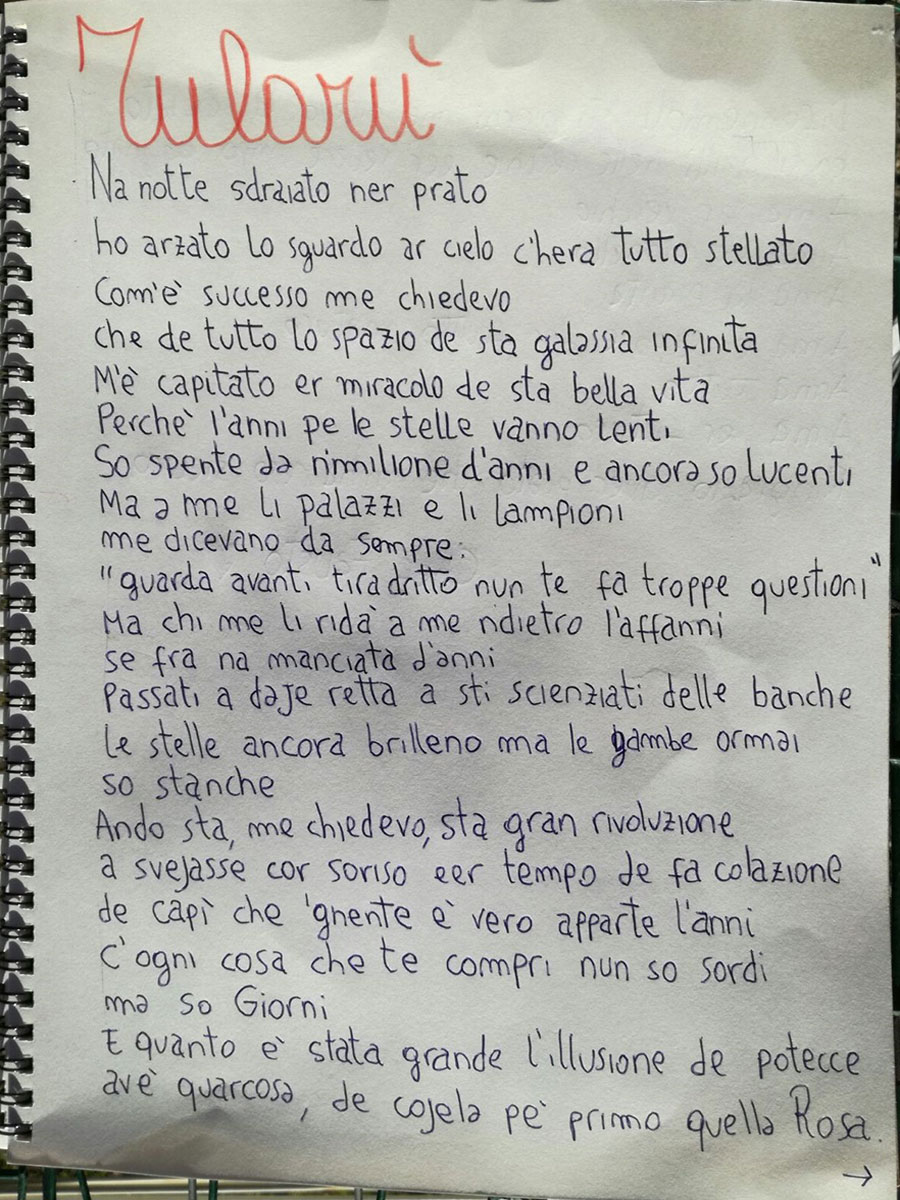 Tularù
Na notte sdraiato ner prato
ho arzato lo sguardo ar cielo c'hera tutto stellato
Com'è successo me chiedevo
che de tutto lo spazio de sta galassia infinita
M'è capitato er miracolo de sta bella vita
Perchè l'anni pe le stelle vanno lenti
So spente da n'milione d'anni e ancora so lucenti
Ma a me li palazzi e li lampioni
me dicevano da sempre:
"guarda avanti tira dritto nun te fa troppe questioni"
Ma chi me li ridà a me ndietro l'affanni
se fra na manciata d'anni
Passati a daje retta a sti scienziati delle banche
Le stelle ancora brilleno ma le gambe ormai
so stanche
Ando sta, me chiedevo, sta gran rivoluzione
a svejasse cor soriso eer tempo de fa colazione
de capì che 'gnente è vero apparte l'anni
C'ogni cosa che te compri nun so sordi
ma so Giorni
E quanto è stata grande l'illusione de potecce
avè quarcosa, de cojela pè primo quella Rosa.
→